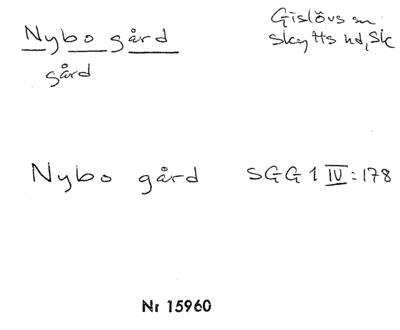 Nybo gård
gård
Gislövs sn
Skytts hd, Sk
Nybo gård SGG 1 IV: 178
Nr 15960